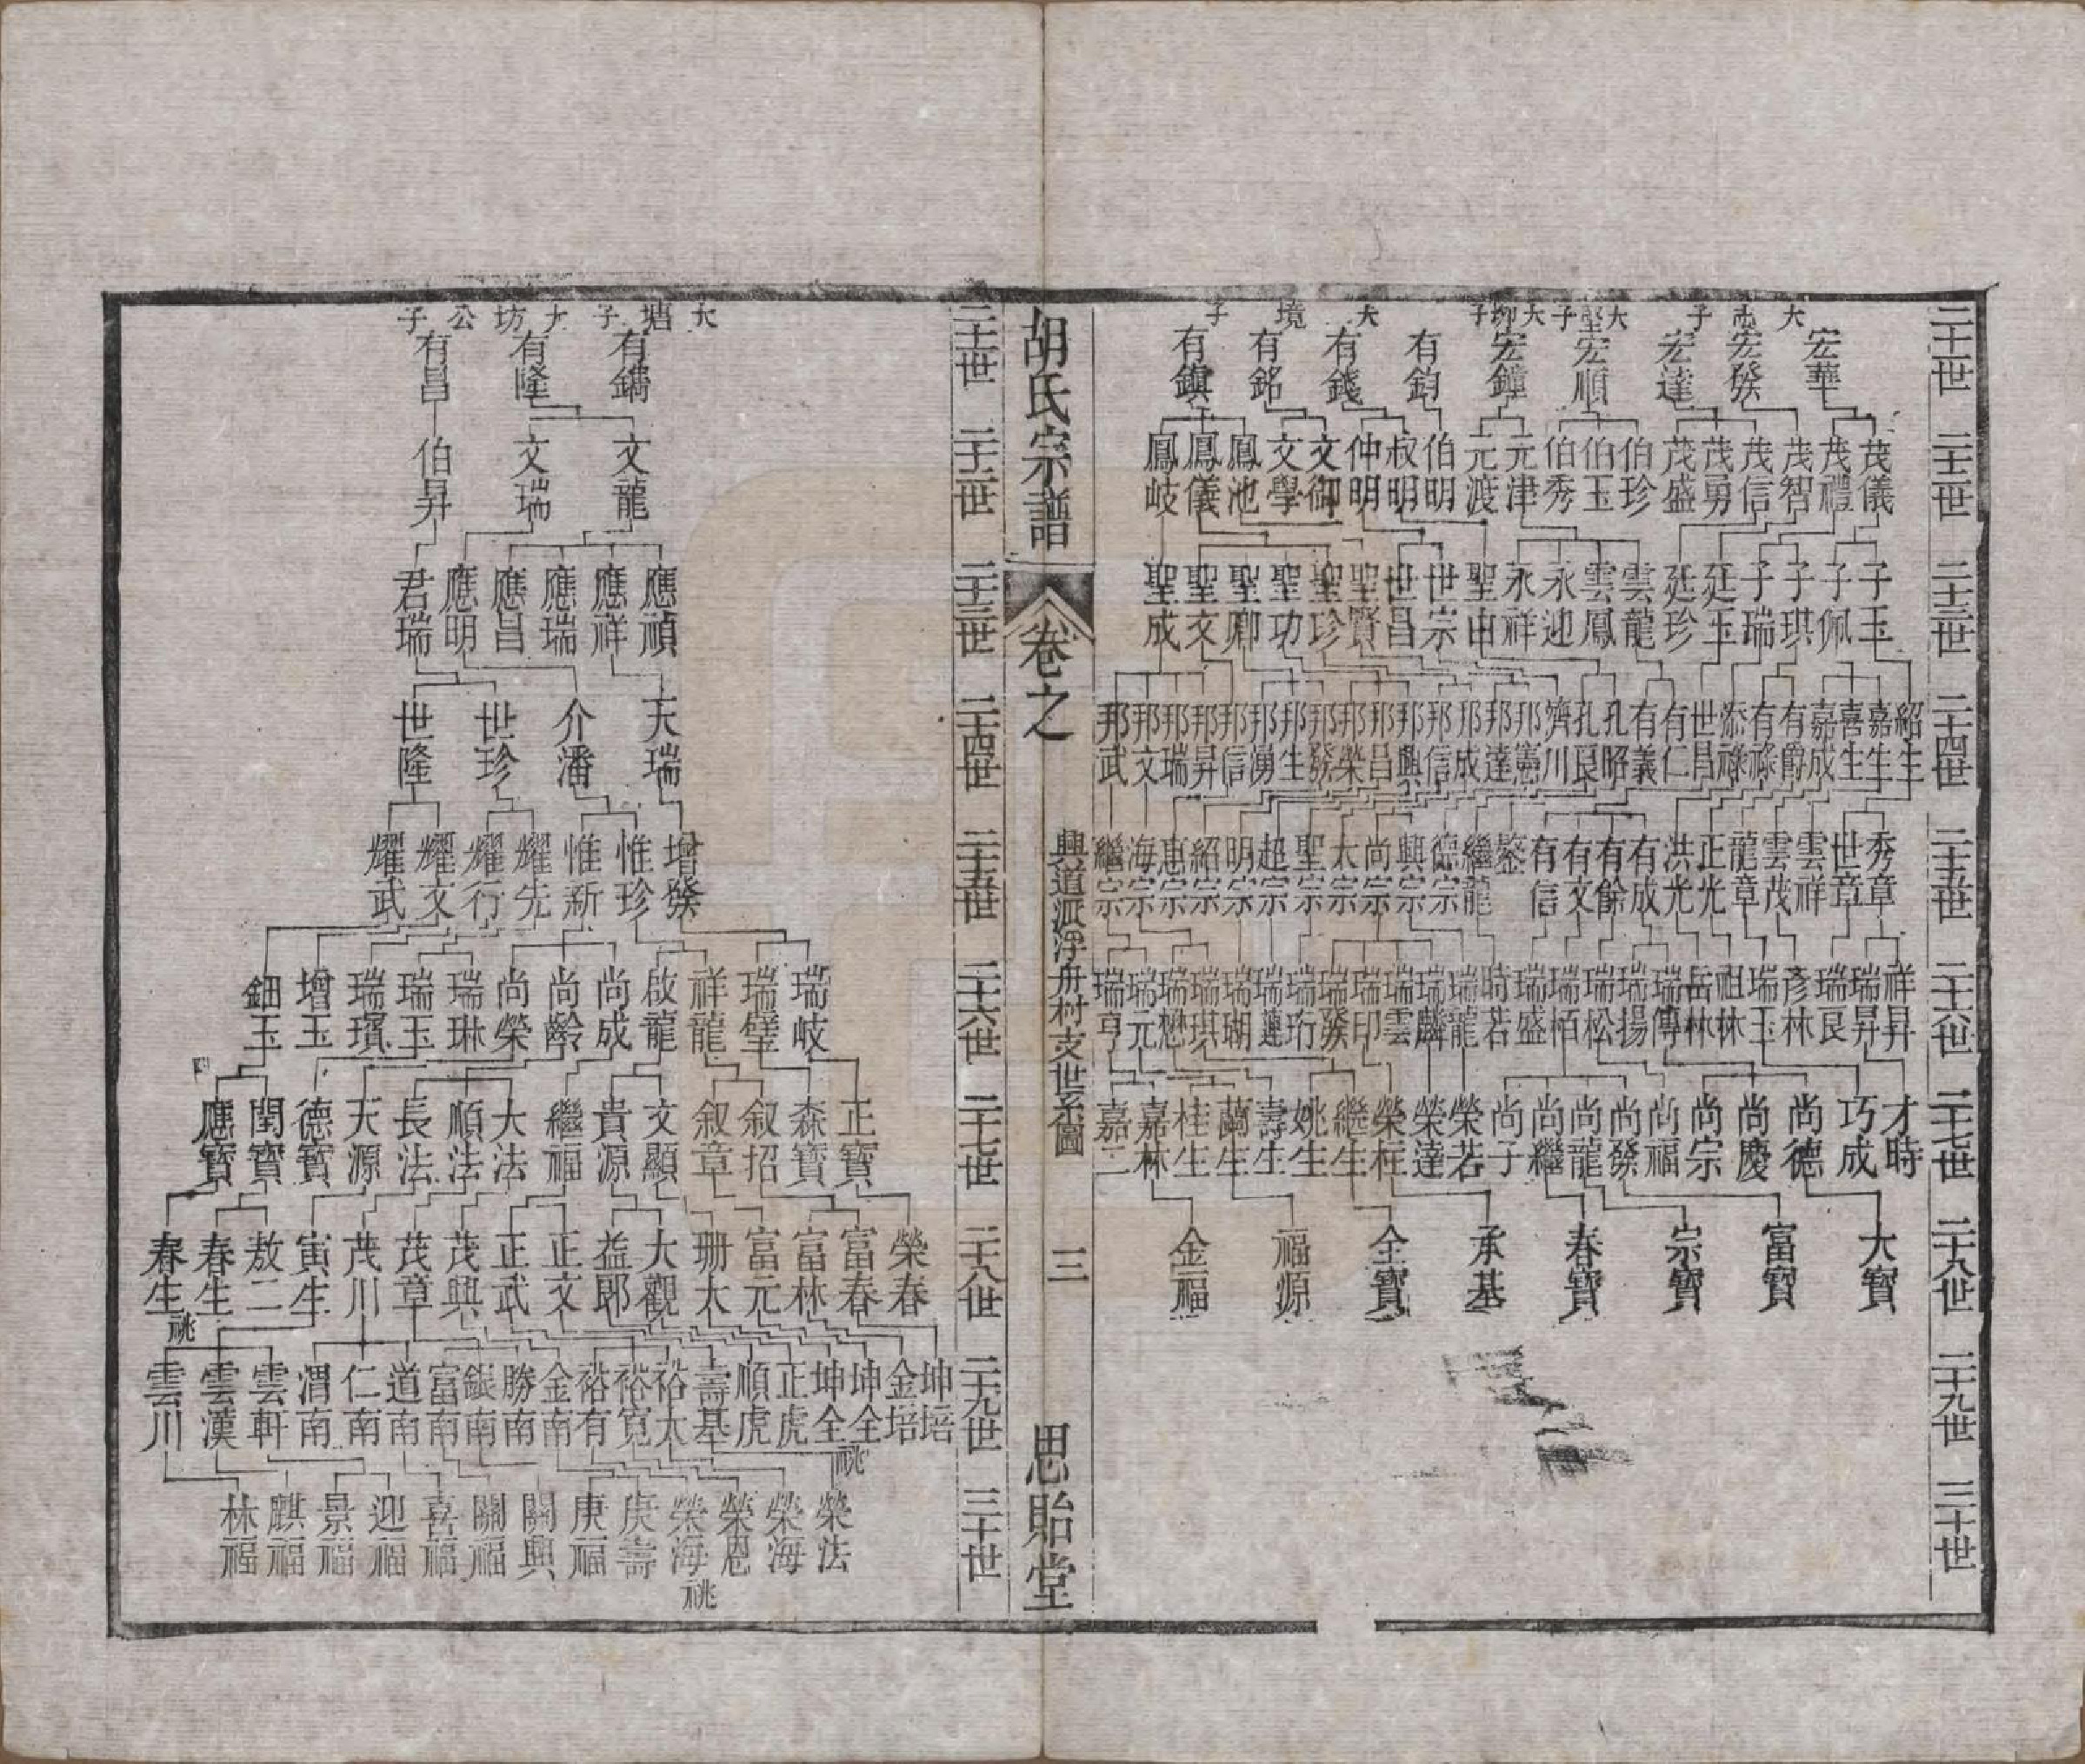 二十一世
大志子
大堅子
大坤子
大境子
宏華
宏發
宏達
宏順
宏鐘
有鈞
有錢
有銘
有鎮
二十二世
茂儀
茂禮
茂智
茂信
茂勇
茂盛
伯珍
伯玉
伯秀
元津
元渡
伯明
叔明
仲明
文御
文學
鳳池
鳳儀
鳳岐
二十三世
子玉
子佩
子琪
子瑞
廷玉
廷珍
雲龍
雲鳳
永迎
永祥
聖由
世宗
世昌
聖賢
聖珍
聖功
聖卿
聖文
聖成
二十四世
紹生
嘉生
喜生
嘉成
有爵
有祿
添祿
世昌
有仁
有義
孔昭
孔良
濟川
邦憲
邦達
邦成
邦信
邦興
邦呂
邦榮
邦發
邦生
邦湧
邦信
邦昇
邦瑞
邦文
邦武
二十五世
秀章
世章
雲祥
雲茂
龍章
正光
洪光
有成
有餘
有文
有信
鏊
繼龍
德宗
興宗
尚宗
太宗
聖宗
超宗
明宗
紹宗
惠宗
海宗
繼宗
二十六世
祥昇
瑞昇
瑞良
彥林
瑞玉
祖林
岳林
瑞傳
瑞揚
瑞松
瑞栢
瑞盛
時若
瑞龍
瑞麟
瑞雲
瑞印
瑞發
瑞珩
瑞璉
瑞瑚
瑞琪
瑞懋
瑞元
瑞亨
二十七世
才時
巧成
尚德
尚慶
尚宗
尚福
尚發
尚龍
尚繼
尚子
榮若
榮達
榮桂
繼生
姚生
壽生
蘭生
桂生
嘉林
嘉二
二十八世
大寶
富寶
宗寶
春寶
承基
全寶
福源
金福
二十九世
三十世
胡氏宗譜
卷之
興道派浮舟村支世系圖
三
思貽堂
二十一世
大塘子
大坊公子
有鑄
有隆
有昌
二十二世
文龍
文瑞
伯昇
二十三世
應禎
應祥
應瑞
應昌
應明
君瑞
二十四世
天瑞
介潘
世珍
世隆
二十五世
增發
惟珍
惟新
耀先
耀行
耀文
耀武
二十六世
瑞岐
瑞璧
祥龍
啟龍
尚成
尚齡
尚榮
瑞琳
瑞玉
瑞璸
增玉
鈿玉
二十七世
正寶
森寶
叙招
叙章
文顯
貴源
繼福
大法
順法
長法
天源
德寶
閏寶
應寶
二十八世
榮春
富春
富林
富元
珊太
大觀
益郎
正文
正武
茂興
茂章
茂川
寅生
敖二
春生
春生
祧
二十九世
坤培
金培
坤全
坤全
祧
正虎
順虎
壽基
裕太
裕寬
裕有
金南
勝南
銀南
富南
道南
仁南
渭南
雲軒
雲漢
雲川
三十世
榮法
榮海
榮恩
榮海
祧
庚壽
庚福
關興
關福
喜福
迎福
景福
麒福
林福